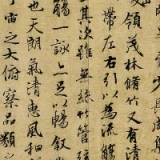 領茂林脩竹又有清
帶左右引以為流
其次雖無絲竹管弦
觴一詠亦足以暢叙
也天朗氣清惠風和
宙之大俯察品類